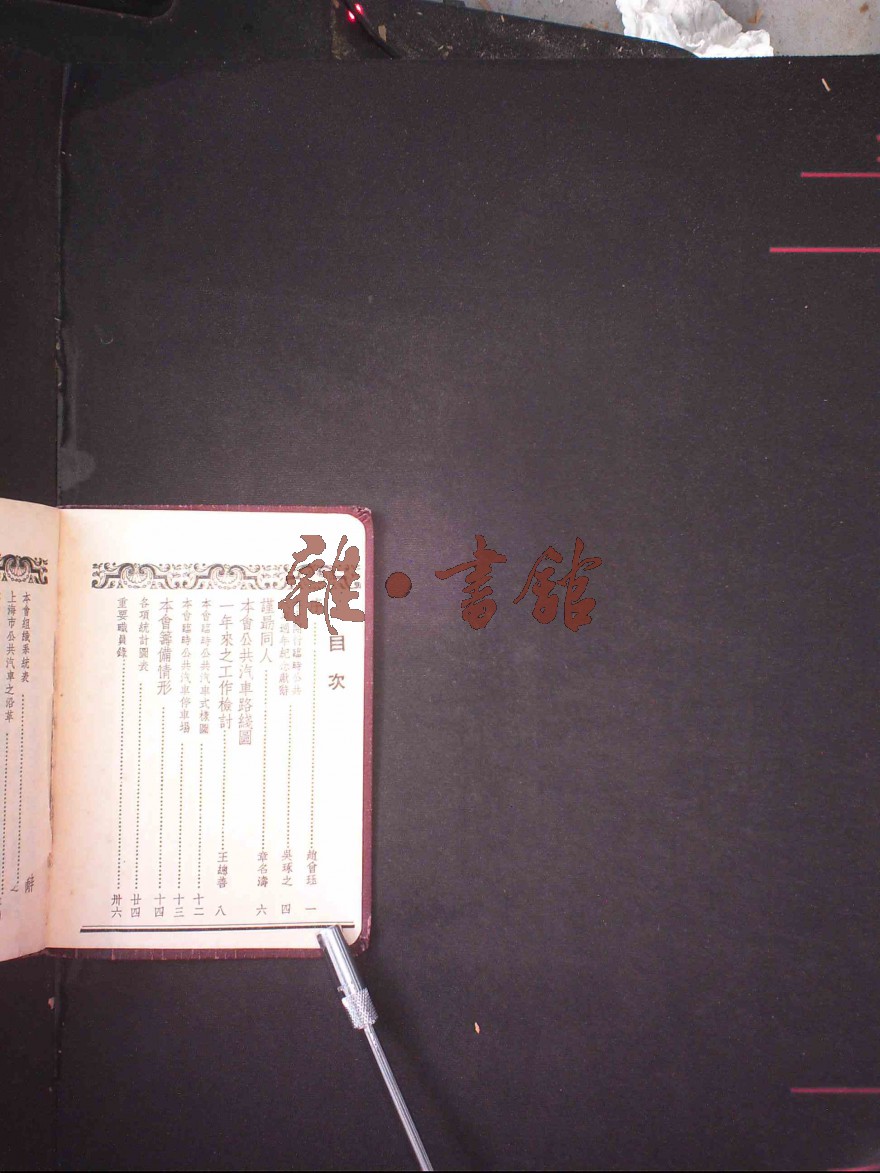 雜·書館
目次
趙曾珏 一
週年紀念獻辭 吳琢之 四
謹勗同人 章名濤 六
本會公共汽車路綫圖
一年來之工作檢討 王總善 八
本會臨時公共汽車式樣圖 十二
本會臨時公共汽車停車場 十三
本會籌備情形 十四
各項統計圖表 廿四
重要職員錄 卅六
本會組織系統表
上海市公共汽車之沿革